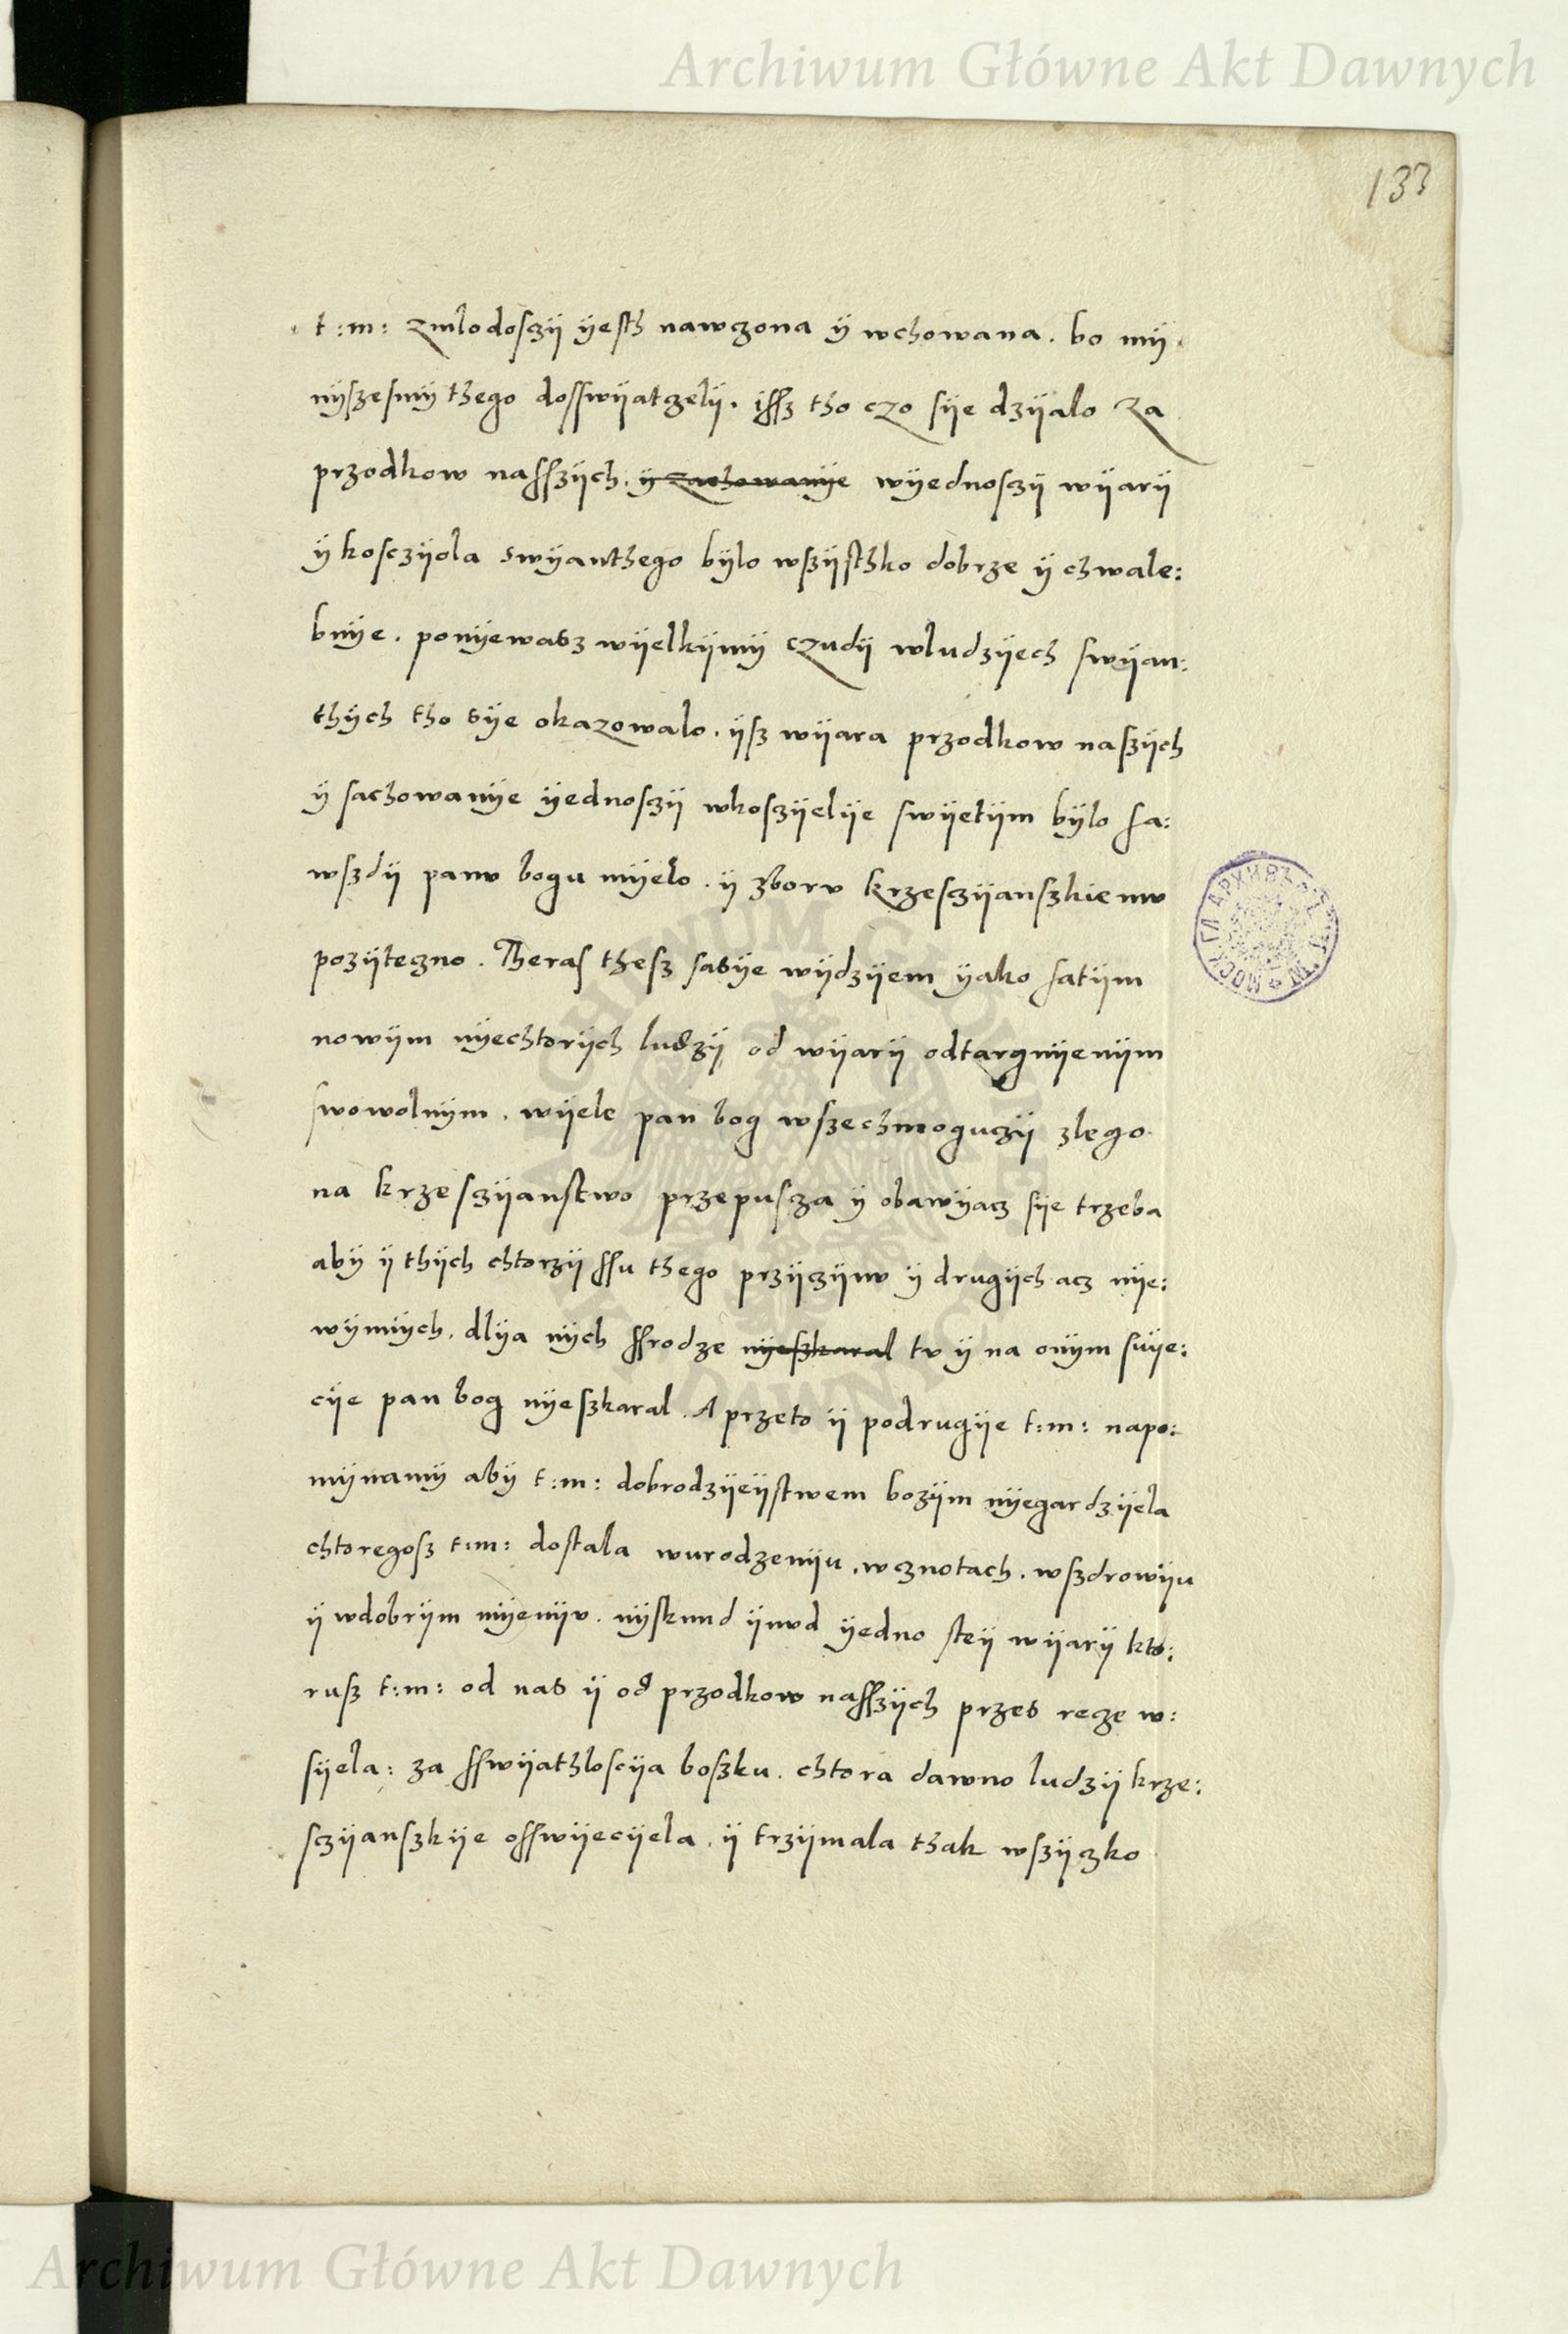 Archiwum Główne Akt Dawnych
133
t:m: zmlodosczÿ ÿesth nawczona ÿ wchowana. bo mÿ
nÿszesmÿ thego dosswÿatczelÿ. ÿssz tho czo sÿe dzÿalo za
przodkow nasszÿch. ÿ zachowanÿe wÿednosczÿ wÿarÿ
ÿ kosczÿola swÿanthego bÿlo wszÿsthko dobrze ÿ chwale:
bnÿe. ponÿewasz wÿelkÿmÿ czudÿ wludzÿech swÿan:
thÿch tho sÿe okazowalo. ÿsz wÿara przodkow naszÿch
ÿ sachowanÿe ÿednosczÿ wkosczÿelÿe swÿetÿm bÿlo sa:
wszdÿ panv bogu mÿelo. ÿ zborv krzesczÿanszkiemv
pozÿteczno. Theras thesz sasÿe wÿdzÿem ÿako satÿm
nowÿm nÿechtorÿch ludzÿ od wÿarÿ odtargnÿenÿm
swowolnÿm. wÿele pan bog wszechmoguczÿ zlego
na krzesczÿanstwo przepuscza ÿ obawÿacz sÿe trzeba
abÿ ÿ thÿch chtorzÿ ssu thego przÿczÿnv ÿ drugÿch acz nÿe:
wÿnnÿch. dlÿa nÿch ssrodze nÿeszkaral tv ÿ na onÿm swÿe:
cÿe pan bog nÿeszkaral. A przeto ÿ podrugÿe t:m: napo:
mÿnamÿ abÿ t:m: dobrodzÿeÿstwem bozÿm nÿegardzÿela
chtoregosz t:m: dostala wurodzenÿu. wcznotach. wszdrowÿu
ÿ wdobrÿm mÿenÿv. nÿskund ÿnvd ÿedno steÿ wÿarÿ kto:
rusz t:m: od nas ÿ od przodkow nasszÿch przes recze w:
sÿela: za sswÿathloscÿa boszku. chtora dawno ludzÿ krze:
sczÿanszkÿe osswÿecÿela. ÿ trzÿmala thak wszÿczko
Archiwum Główne Akt Dawnych